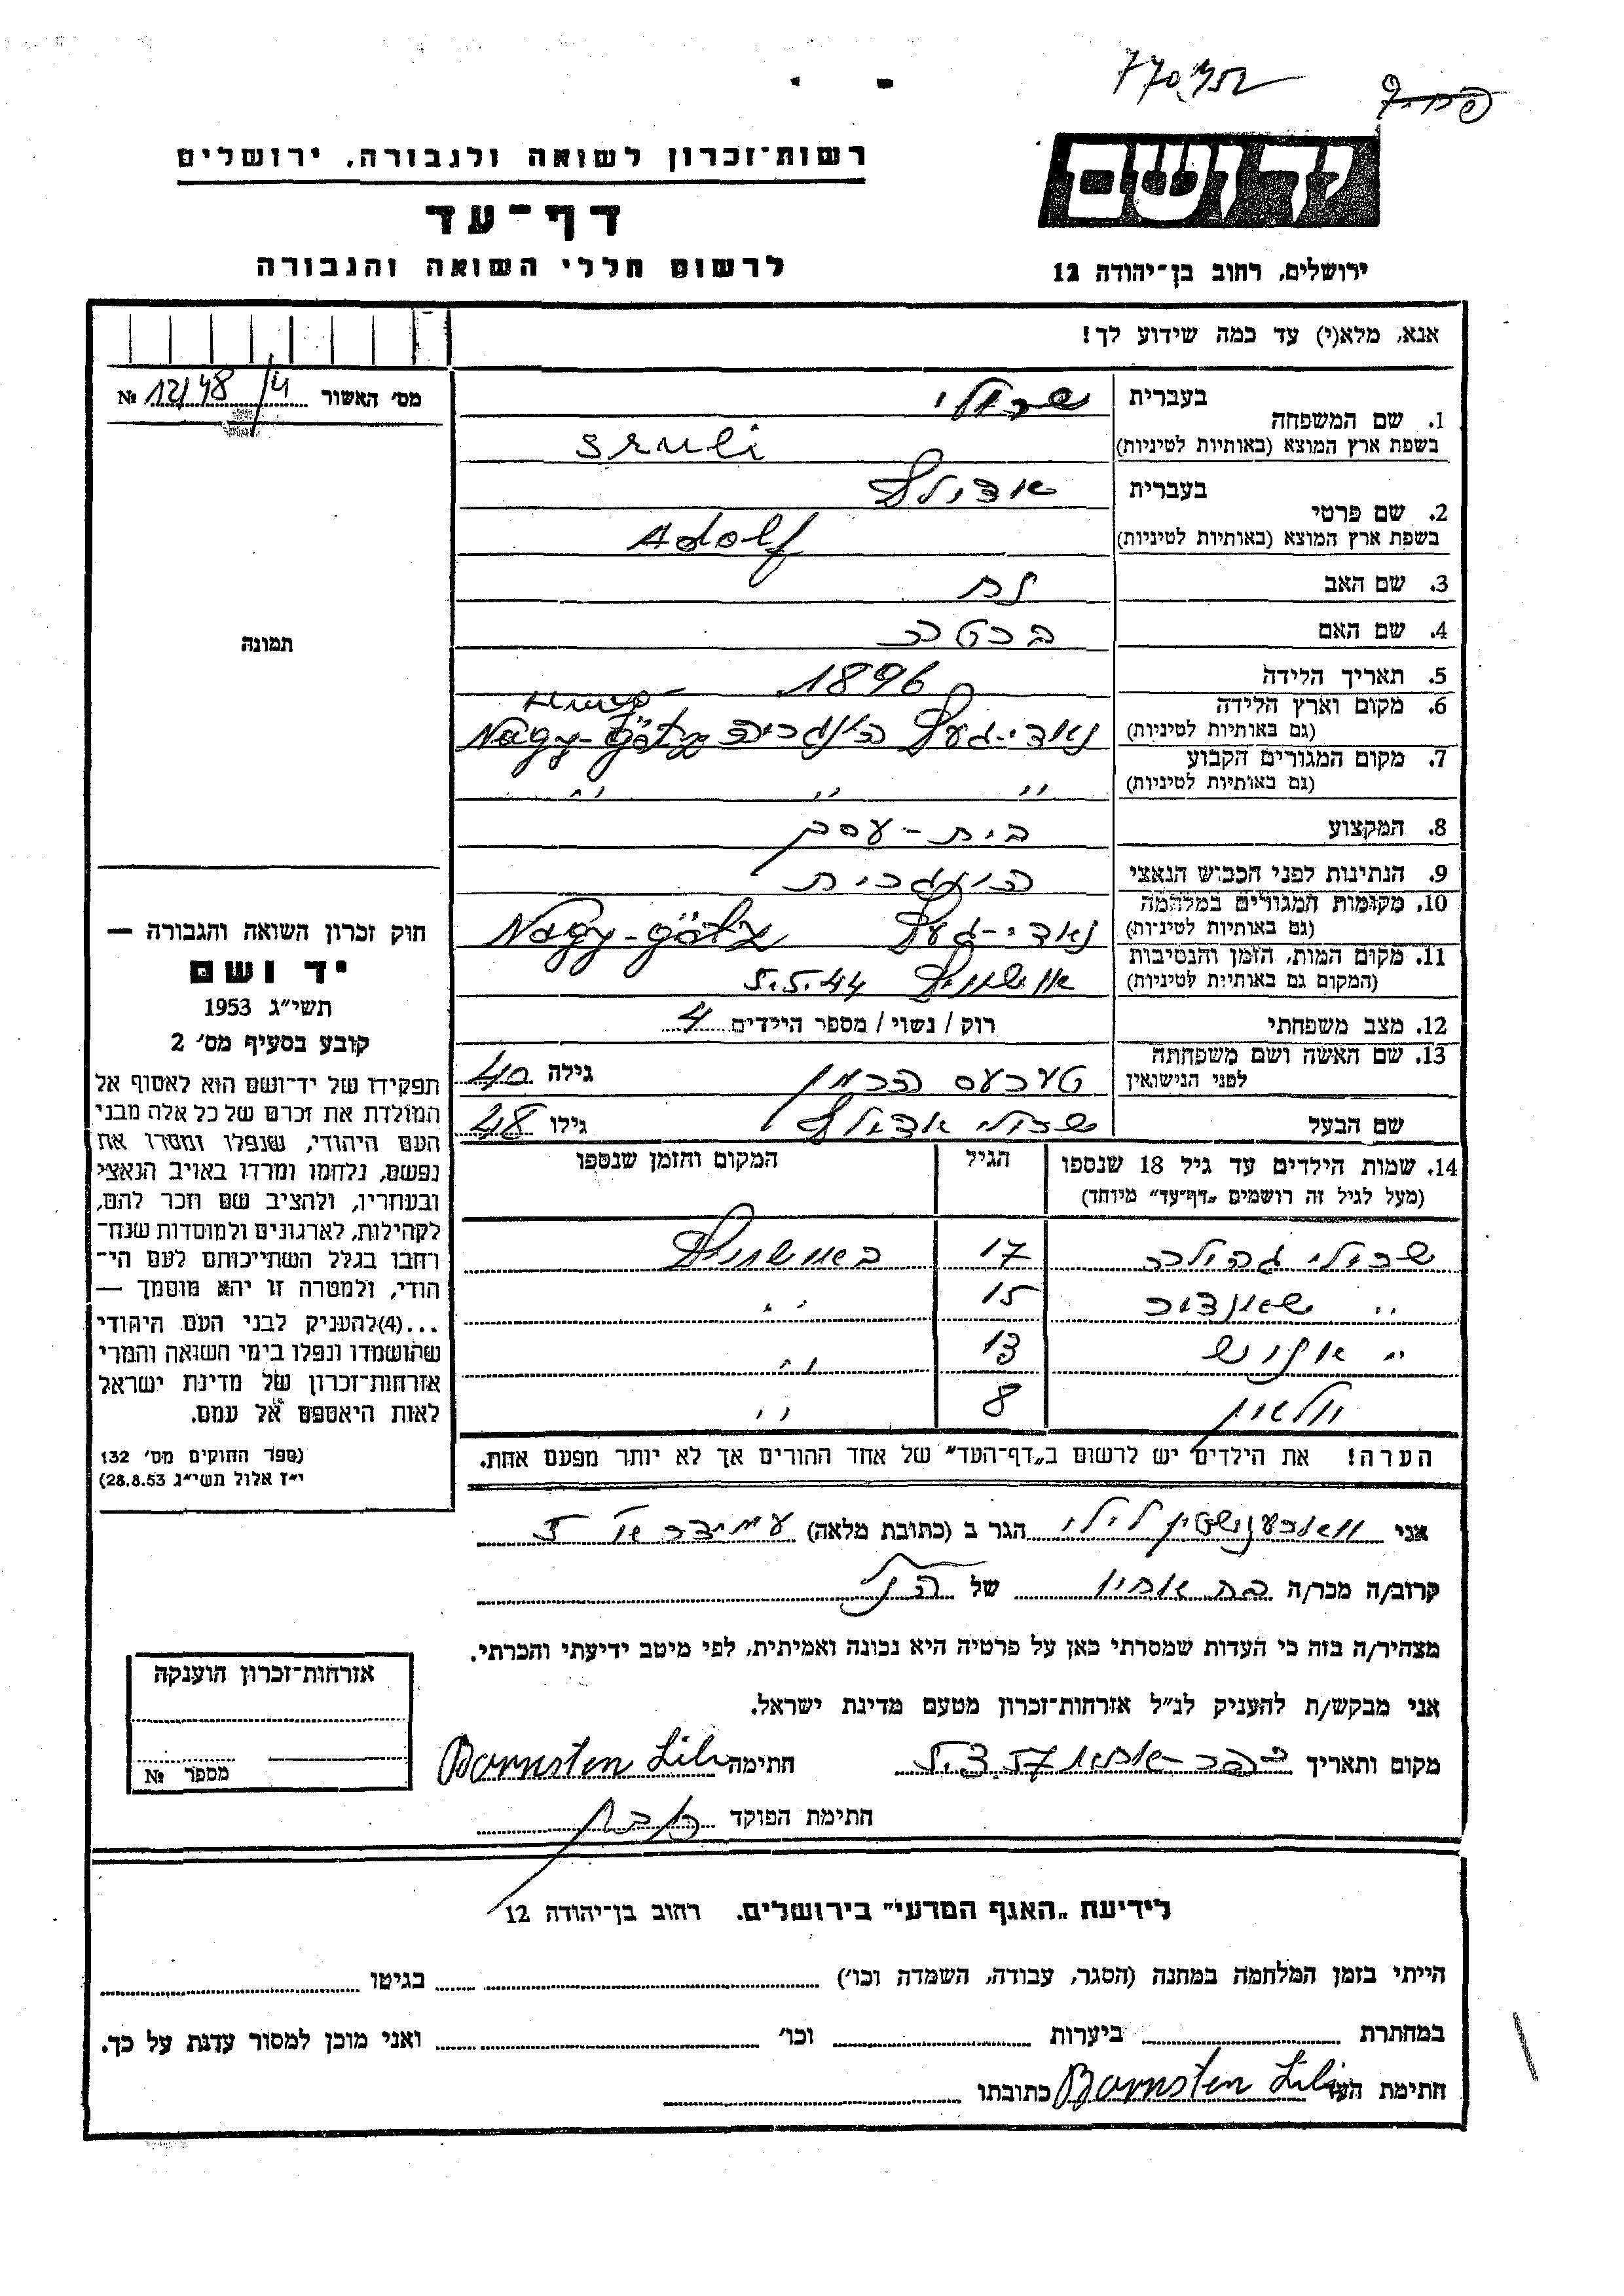 רשות־זכרון לשואה ולגבורה, ירושלים
דף־עד
לרשום חללי השואה והגבורה
ידושם
ירושלים, רחוב בן־יהודה 12
אנא, מלא(י) עד כמה שידוע לך!
מס׳ האשור 12/48/4 №
1. שם המשפחה בעברית שרולי
בשפת ארץ המוצא (באותיות לטיניות) Sruli
2. שם פרטי בעברית אדולף
בשפת ארץ המוצא (באותיות לטיניות) Adolf
3. שם האב
4. שם האם ברטה
5. תאריך הלידה 1896
6. מקום וארץ הלידה
(גם באותיות לטיניות) הונגריה Nagy-
7. מקום המגורים הקבוע
(גם באותיות לטיניות) " " "
8. המקצוע בית-
9. הנתינות לפני הכבוש הנאצי הונגרית
10. מקומות המגורים במלחמה
(גם באותיות לטיניות) Nagy-
11. מקום המות, הזמן והנסיבות
(המקום גם באותיות לטיניות) אושוויץ 5.5.44
12. מצב משפחתי רוק / נשוי / מספר הילדים 4
13. שם האשה ושם משפחתה
לפני הנישואין הרמן גילה 40
שם הבעל שרולי אדולף גילו 48
14. שמות הילדים עד גיל 18 שנספו הגיל המקום והזמן שנספו
(מעל לגיל זה רושמים „דף־עד״ מיוחד)
שרולי 17 באושוויץ
" שאנדור 15 "
" 13 "
8 "
הערה! את הילדים יש לרשום ב„דף־העד״ של אחד ההורים אך לא יותר מפעם אחת.
תמונה
חוק זכרון השואה והגבורה —
יד ושם
תשי״ג 1953
קובע בסעיף מס׳ 2
תפקידו של יד־ושם הוא לאסוף אל
המולדת את זכרם של כל אלה מבני
העם היהודי, שנפלו ומסרו את
נפשם, נלחמו ומרדו באויב הנאצי
ובעוזריו, ולהציב שם וזכר להם,
לקהילות, לארגונים ולמוסדות שנח־
רבו בגלל השתייכותם לעם הי־
הודי, ולמטרה זו יהא מוסמך —
...(4)להעניק לבני העם היהודי
שהושמדו ונפלו בימי השואה והמרי
אזרחות־זכרון של מדינת ישראל
לאות היאספם אל עמם.
(ספר החוקים מס׳ 132
י״ז אלול תשי״ג 28.8.53)
אני לילי הגר ב (כתובת מלאה)
קרוב/ה מכר/ה של הנ״ל
מצהיר/ה בזה כי העדות שמסרתי כאן על פרטיה היא נכונה ואמיתית, לפי מיטב ידיעתי והכרתי.
אני מבקש/ת להעניק לנ״ל אזרחות־זכרון מטעם מדינת ישראל.
מקום ותאריך חתימה Bornsten Lili
חתימת הפוקד
אזרחות־זכרון הוענקה
מספר №
לידיעת „האגף המדעי״ בירושלים, רחוב בן־יהודה 12
הייתי בזמן המלחמה במחנה (הסגר, עבודה, השמדה וכו׳) בגיטו
במחתרת ביערות וכו׳ ואני מוכן למסור עדות על כך.
חתימת העד Bornsten Lili כתובתו